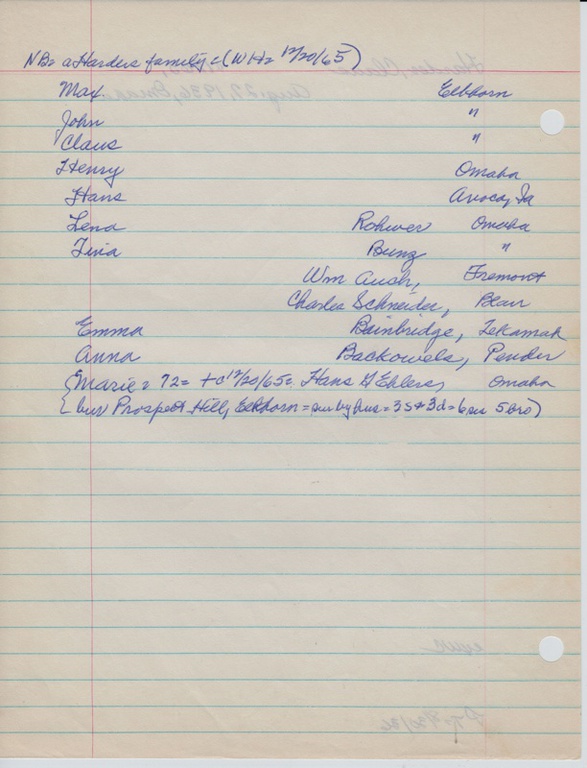 NB= a Harders family = (WH= 12/20/65)
Max Elkhorn
John "
Claus "
Henry Omaha
Hans Avoca, Ia
Lena Rohwer Omaha
Tina Bunz "
Wm Fremont
Charles Schneider, Blair
Emma Bainbridge, Tekamah
Anna Backowels, Pender
{Marie = 72= +c 12/20/65= Hans H Ehlers, Omaha
bur Prospect Hill, Elkhorn = sur by hus = 3s + 3d = 6 sis 5 bro)